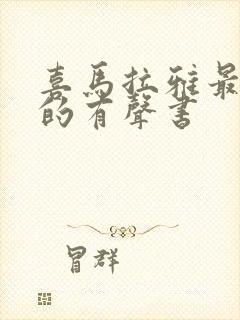 喜馬拉雅最
的有聲書
冒群